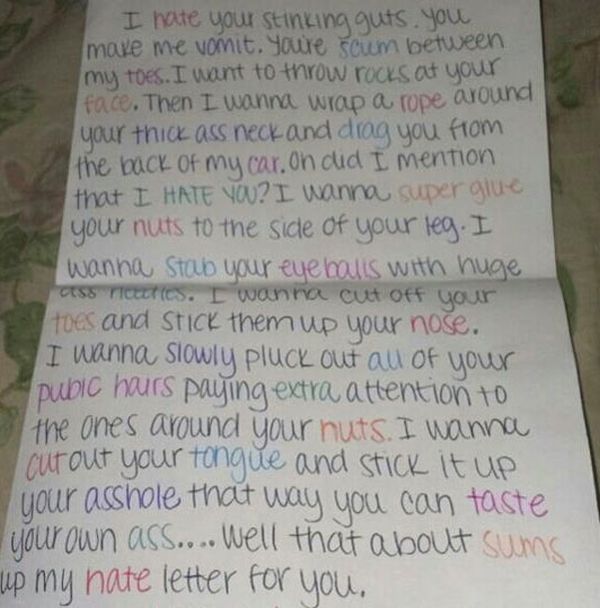 I hate your stinking guts. You
make me vomit. You're scum between
my toes. I want to throw rocks at your
face. Then I wanna wrap a rope around
your thick ass neck and drag you from
the back of my car. Oh did I mention
that I HATE YOU? I wanna super glue
your nuts to the side of your leg. I
wanna stab your eyeballs with huge
ass needles. I wanna cut off your
toes and stick them up your nose.
I wanna slowly pluck out all of your
pubic hairs paying extra attention to
the ones around your nuts. I wanna
cut out your tongue and stick it up
your asshole that way you can taste
your own ass.... Well that about sums
up my hate letter for you.